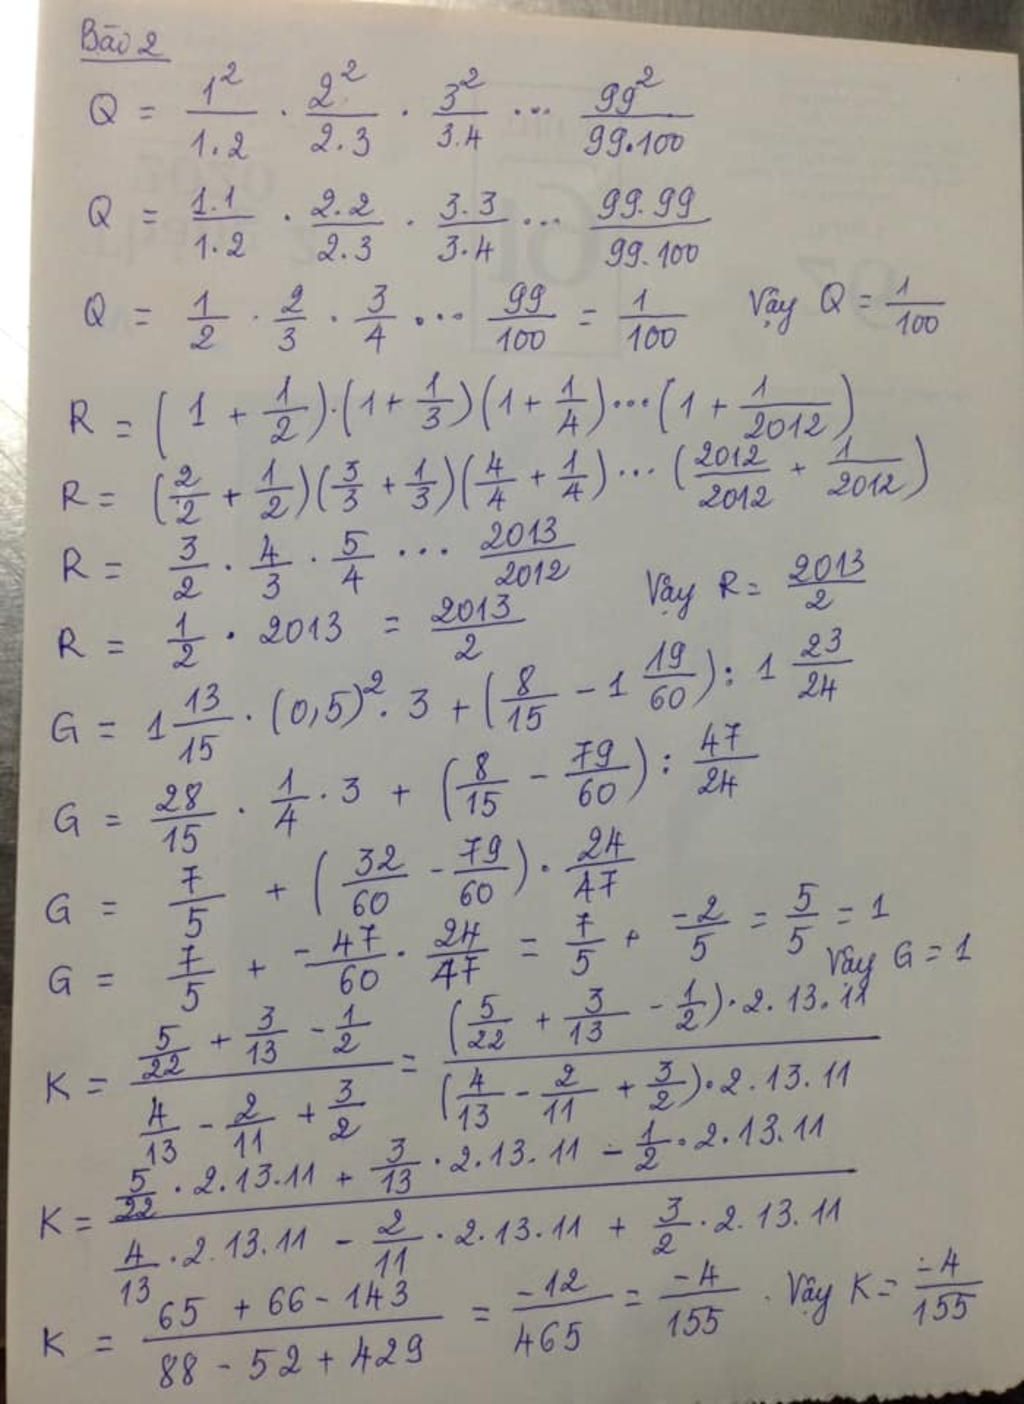 Bài 2
Q = 1²/1.2 . 2²/2.3 . 3²/3.4 ... 99²/99.100
Q = 1.1/1.2 . 2.2/2.3 . 3.3/3.4 ... 99.99/99.100
Q = 1/2 . 2/3 . 3/4 ... 99/100 = 1/100 Vậy Q = 1/100
R = (1 + 1/2).(1 + 1/3)(1 + 1/4)...(1 + 1/2012)
R = (2/2 + 1/2)(3/3 + 1/3)(4/4 + 1/4)...(2012/2012 + 1/2012)
R = 3/2 . 4/3 . 5/4 ... 2013/2012
R = 1/2 . 2013 = 2013/2 Vậy R = 2013/2
G = 1 13/15 . (0,5)² . 3 + (8/15 - 1 19/60) : 1 23/24
G = 28/15 . 1/4 . 3 + (8/15 - 79/60) : 47/24
G = 7/5 + (32/60 - 79/60) . 24/47
G = 7/5 + -47/60 . 24/47 = 7/5 + -2/5 = 5/5 = 1
Vậy G = 1
K = (5/22 + 3/13 - 1/2)/(4/13 - 2/11 + 3/2) = ((5/22 + 3/13 - 1/2).2.13.11)/((4/13 - 2/11 + 3/2).2.13.11)
K = (5/22 . 2.13.11 + 3/13 . 2.13.11 - 1/2 . 2.13.11)/(4/13 . 2.13.11 - 2/11 . 2.13.11 + 3/2 . 2.13.11)
K = (65 + 66 - 143)/(88 - 52 + 429) = -12/465 = -4/155 . Vậy K = -4/155